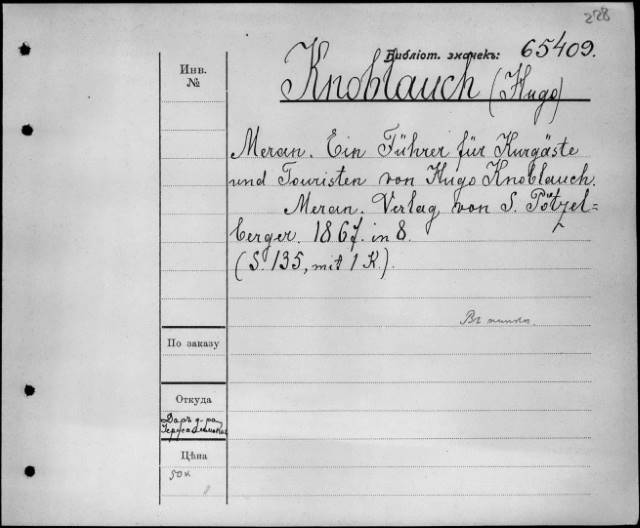 228
Библіот. значекъ: 65409.
Инв.
№
Knoblauch (Hugo)
Meran. Ein Führer für Kurgäste
und Touristen von Hugo Knoblauch.
Meran. Verlag von S. Pötzel=
berger. 1867. in 8.
(S. 135, mit 1 K.).
Въ
По заказу
Откуда
Даръ д-ра
Цѣна
50к